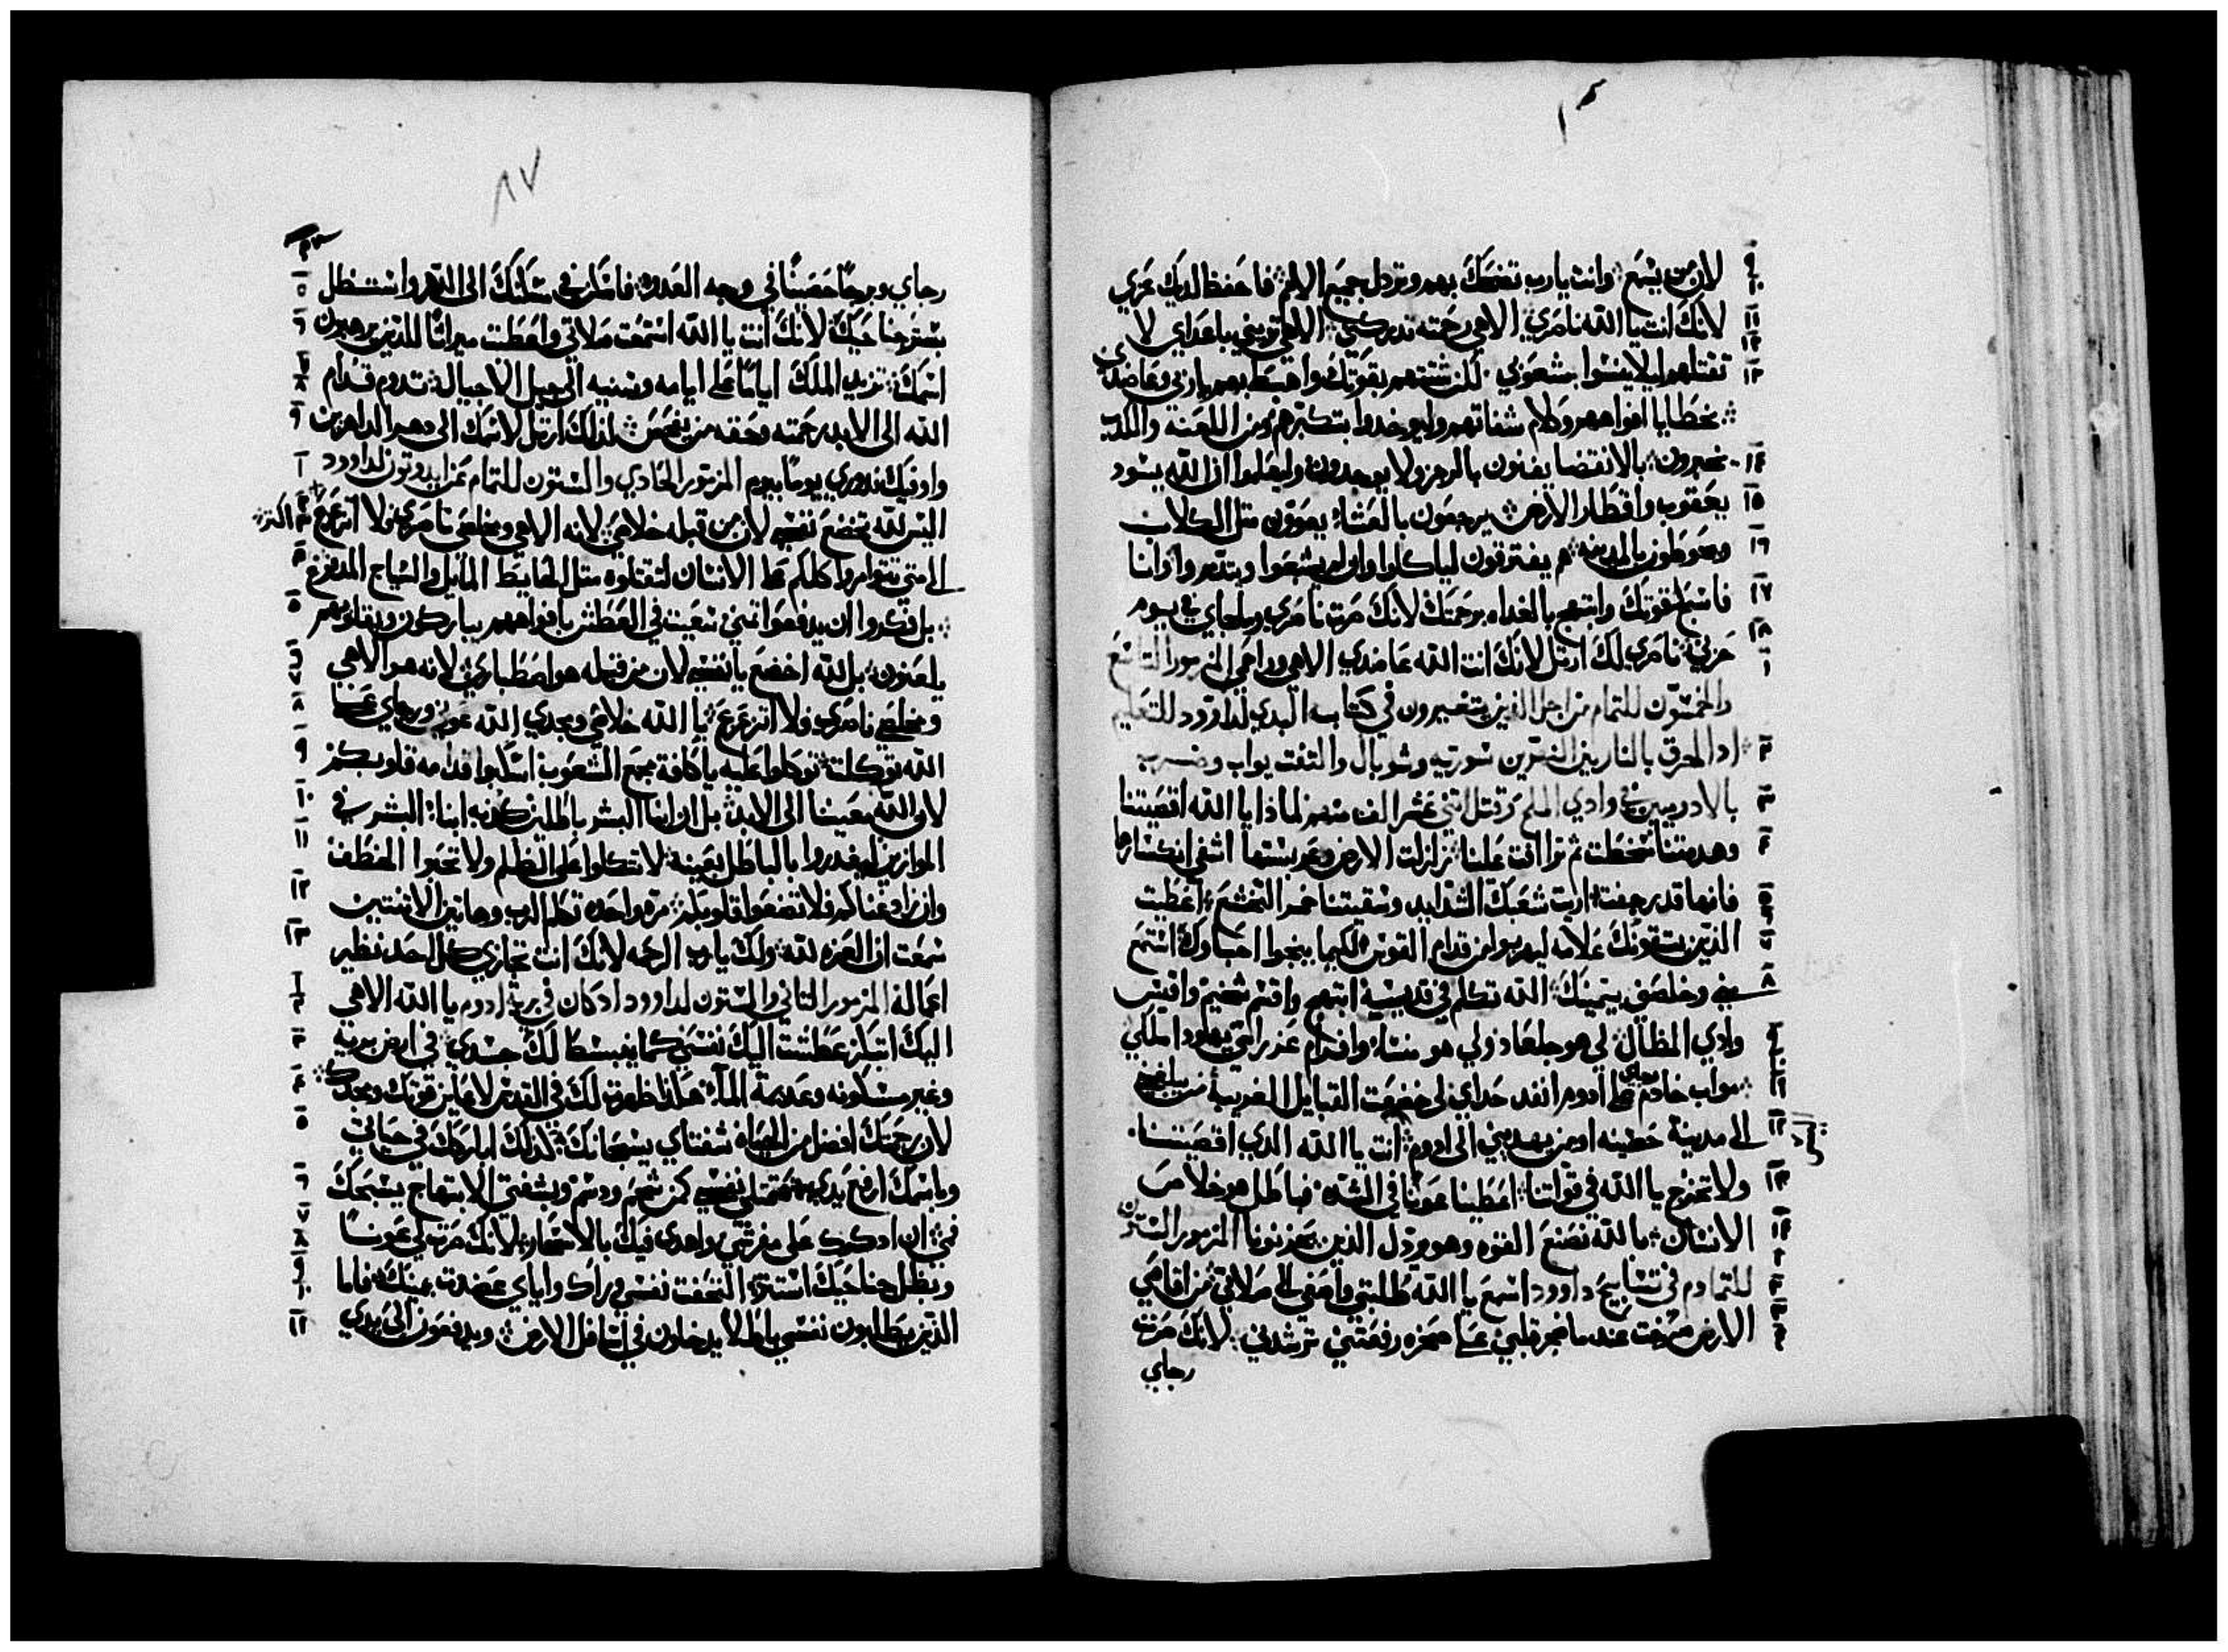 لان من يسمع وانت يارب تضحك بهم وتردل جميع الامم فاحفظ لديك عزي
لانك انت يا الله ناصري الاهي رحمته تدركني الاهي يريني باعداي لا
تقتلهم ليلا ينسوا شعوبي لكن شتتهم بقوتك واهبط بهم يارب وعاضدي
بخطايا افواههم وكلام شفاتهم وليوخدوا بتكبرهم ومن اللعنه والكدب
يخبرون بالانقضا يفنون بالرجز ولا يوجدون وليعلموا ان الله يسود
يعقوب واقطار الارض يرجعون بالعشاء يعوون مثل الكلاب
ويحوطون بالمدينه هم يفترقون لياكلوا وان لم يشبعوا ويتدمروا وانا
فاسبح لقوتك وابتهج بالغداه برحمتك لانك صرت ناصري وملجاي في يوم
حزني ناصري لك ارتل لانك انت الله عاضدي الاهي وراحمي المزمور التاسع
والخمسون للتمام من اجل الذين يتغيرون في كتابه البدي لداوود للتعليم
اد احرق بالنار بين النهرين سورية وشوبال والتفت يواب وضرب
بالادوميين في وادي الملح وقتل اثني عشر الف منهم لماذا يا الله اقصيتنا
وهدمتنا سخطت ثم تراافت علينا زلزلت الارض وعربستها اشفي انكسارها
فانها قد رجفت اريت شعبك الشدايد وسقيتنا خمر التخشع اعطيت
الذين يتقونك علامه ليهربوا من قدام القوس لكيما ينجوا احباوك استمع
مني وخلصني بيمينك الله تكلم في قديسيه ابتهج واقسم شخيم واقيس
وادي المظال لي هو جلعاد ولي هو منساء وافرام عز راسي يهودا ملكي
مواب خادم رجاي على ادوم انفد حداي لي خضعت القبايل الغريبة من يبلغني
الى مدينة حصينه او من يهديني الى ادوم انت يا الله الدي اقصيتنا
ولا تخرج يا الله في قواتنا اعطينا عونا في الشده فباطل هو خلاص
الانسان بالله نصنع القوه وهو يردل الذين يحزنونا المزمور الستون
للتمام في تسابيح داوود اسمع يا الله طلبتي واصغي الى صلاتي من اقاصي
الارض صرخت عندما ضجر قلبي على صخره رفعتني ترشدني لانك صرت
رجاي
٨٧
رجاي وبرجا حصينا في وجه العدو فاسكن في مسكنك الى الدهر واستظل
بستر جناحيك لانك انت يا الله استمعت صلاتي واعطيت ميراثا للذين يرهبون
اسمك تزيد الملك اياما على ايامه وسنيه الى جيل الاجيال تدوم قدام
الله الى الابد رحمته وحقه من يفحص لذلك ارتل لاسمك الى دهر الداهرين
واوفيك ندوري يوما بيوم المزمور الحادي والستون للتمام عن ايديثون لداوود
اليس لله تخضع نفسي لان من قبله خلاصي لانه الاهي ومخلصي ناصري فلا اتزعزع اكثر
الى متى تتوامروا كلكم على الانسان لتقتلوه مثل الحايط المايل والسياج المدفوع
بل فكروا ان يدفعوا تمني سعيت في العطش بافواههم يباركون وبقلوبهم
يلعنون بل لله اخضع يا نفسي لان من قبله هو اصطباري لانه هو الاهي
ومخلصي ناصري فلا اتزعزع يا الله خلاصي ومجدي الله عوني ورجاي على
الله توكلت توكلوا عليه يا كافة مجمع الشعوب اسكبوا قدامه قلوبكم
لان الله معيننا الى الابد بل ان ابناء البشر باطلين كدبه ابناء البشر في
الموازين ليغدروا بالباطل بعينه لا تتكلوا على الظلم ولا تحبوا الخطف
وان زاد غناكم فلا تضعوا قلوبكم مره واحده تكلم الرب وهاتين الاثنتين
سمعت ان العزه لله ولك يا رب الرحمه لانك انت تجازي كل احد نظير
اعماله المزمور الثاني والستون لداوود اد كان في برية ادوم يا الله الاهي
اليك ابتكر عطشت اليك نفسي كما ينبسط لك جسدي في ارض بريه
وغير مسكونه وعديمة الماء هكدا ظهرت لك في القدس لاعاين قوتك ومجدك
لان رحمتك افضل من الحياه شفتاي يسبحانك كذلك اباركك في حياتي
وباسمك ارفع يدي فتمتلي نفسي كمن شحم ودسم وبشفتي الابتهاج يسبحك
فمي ان ادكرك على مفرشي واهدي فيك بالاسحار لانك صرت لي عونا
وبظل جناحيك استتر التحفت نفسي وراك واياي عضدت يمينك فاما
الذين يطلبون نفسي باطلا يدخلون في اسافل الارض ويدفعون الى يدي